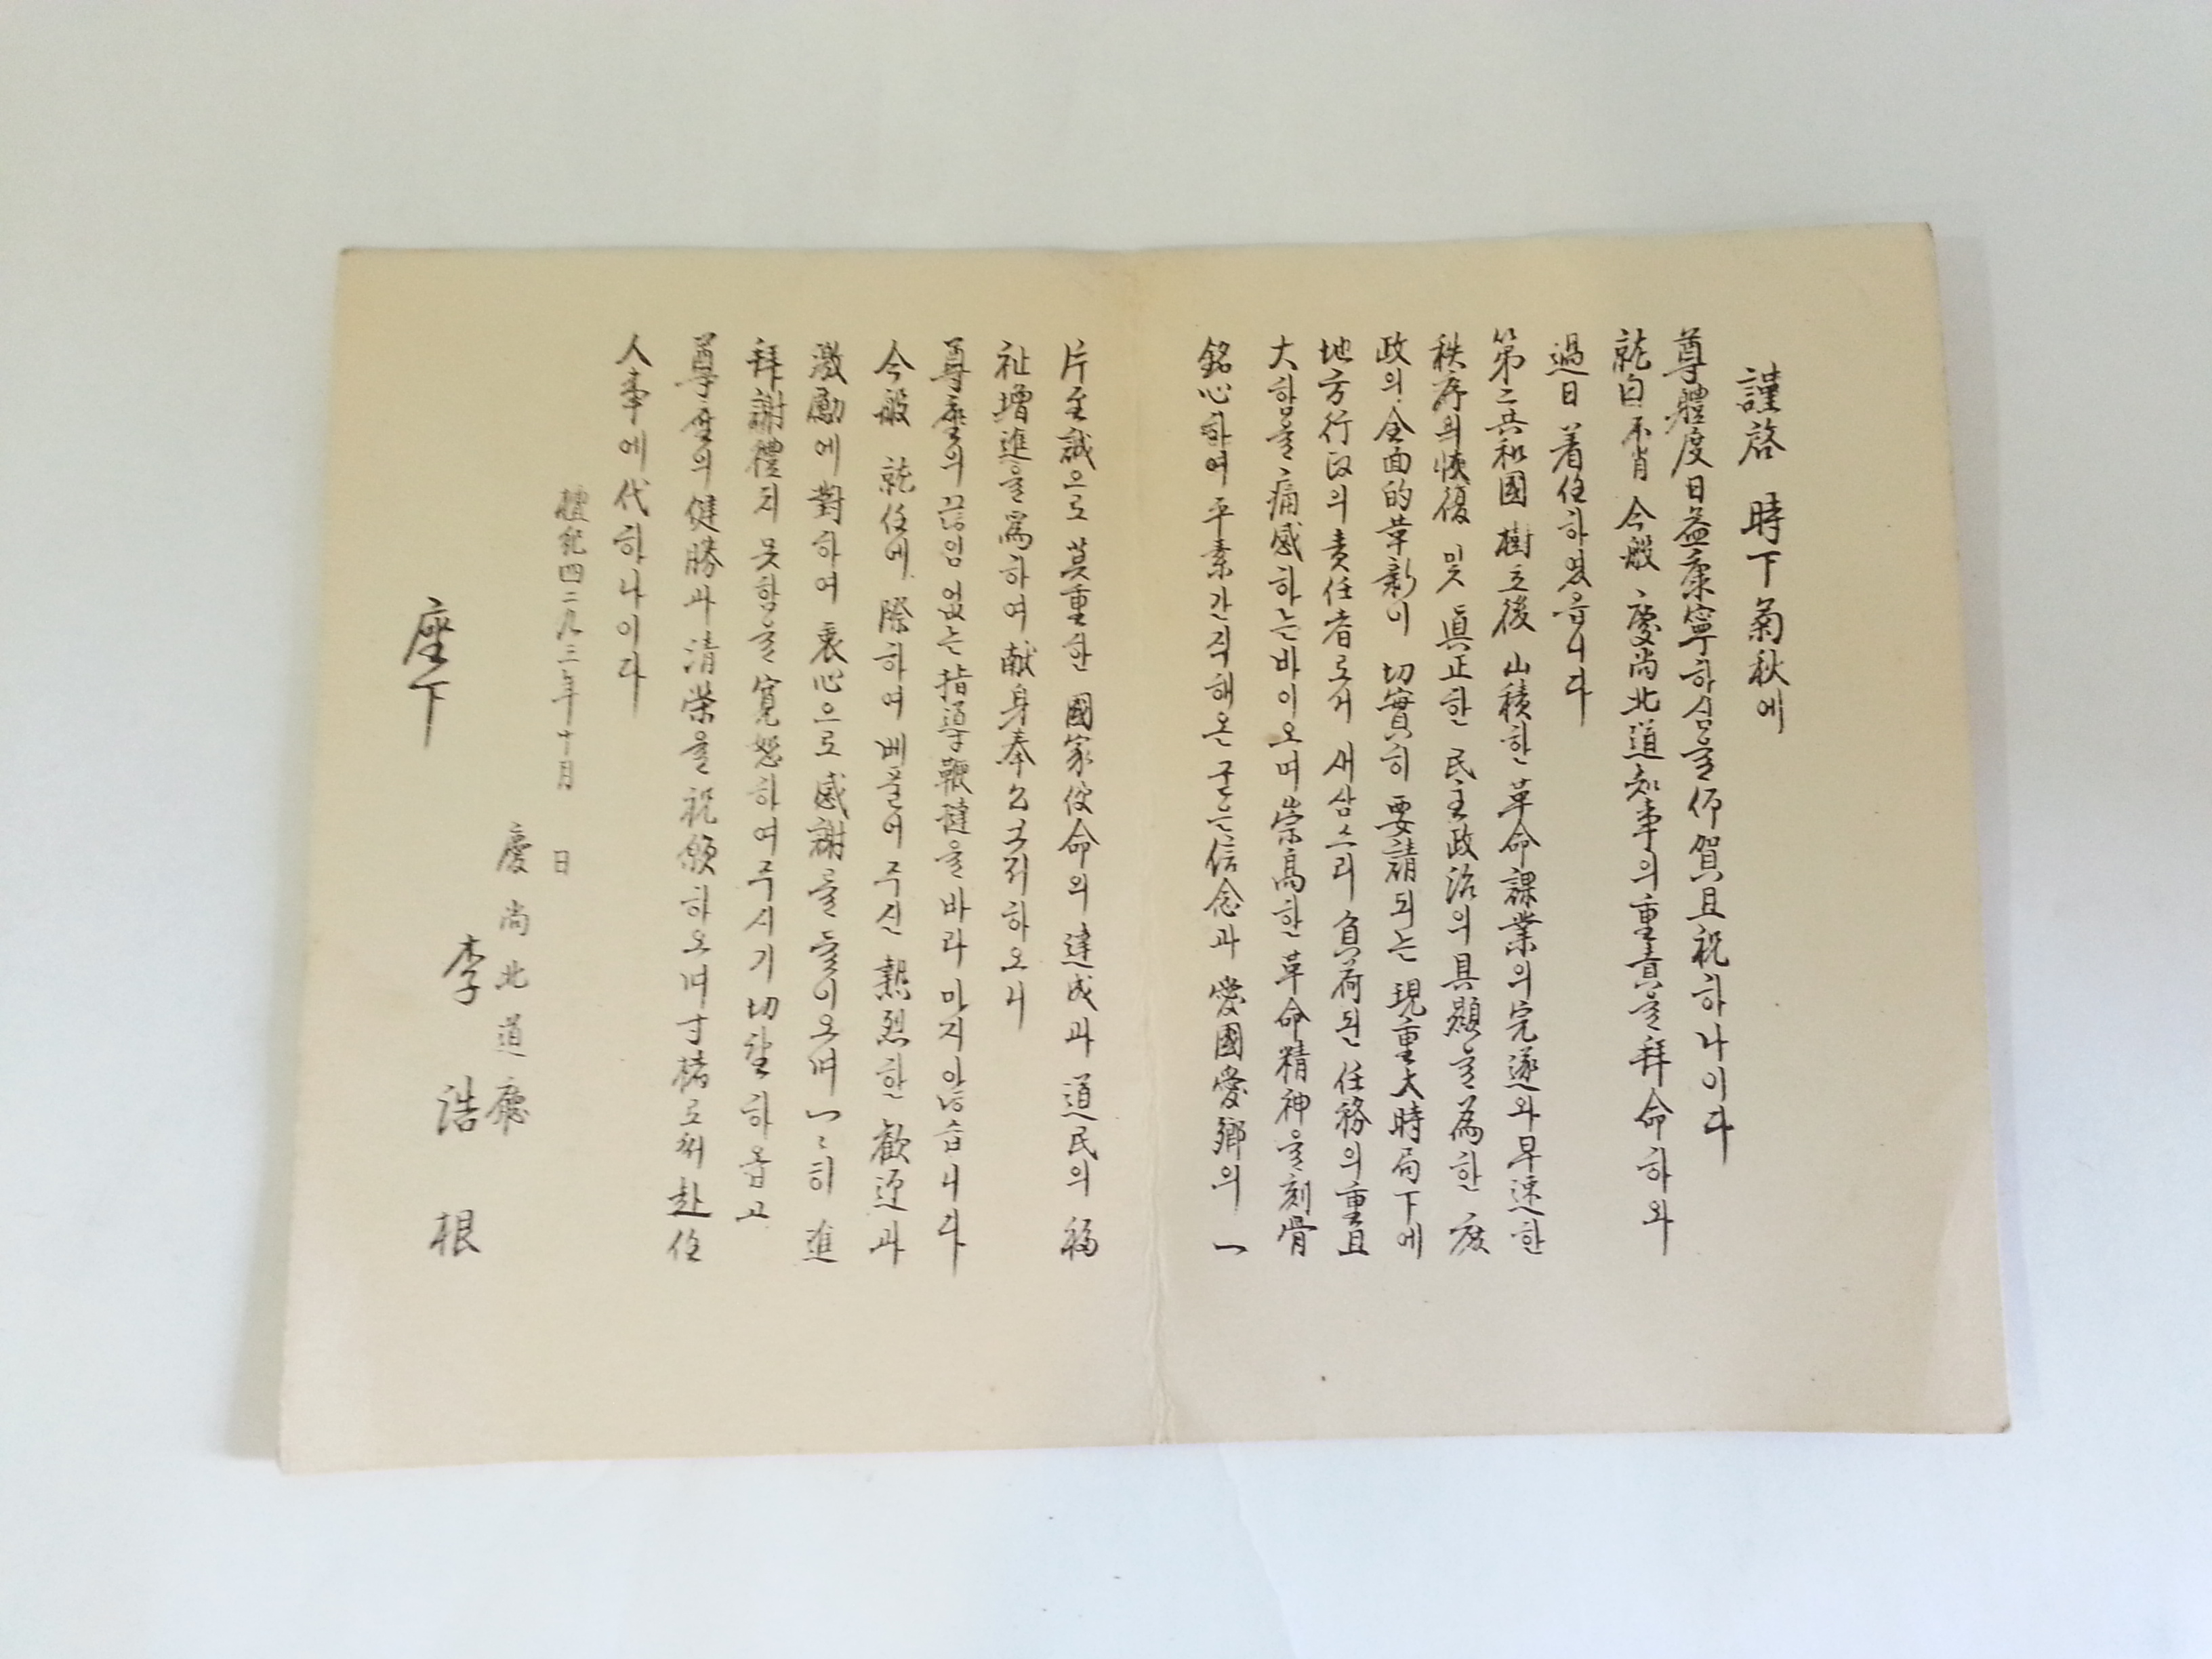 謹啓 時下菊秋에
尊體度日益康寧하심을仰賀且祝하나이다
就白不肖 今般 慶尙北道知事의重責을拜命하와
過日着任하였읍니다
第二共和國樹立後 山積한革命課業의完遂와早速한
秩序의恢復 및 眞正한民主政治의具顯을為한庶
政의全面的革新이 切實히要請되는現重大時局下에
地方行政의責任者로서 새삼스리負荷된任務의重且
大함을痛感하는바이오며崇高한革命精神을刻骨
銘心하여平素간직해온굳은信念과愛國愛鄕의一
片至誠으로莫重한國家使命의達成과道民의福
祉增進을爲하여献身奉公코저하오니
尊座의끊임없는指導鞭撻을바라마지않습니다
今般 就任에際하여베풀어주신熱烈한歡迎과
激勵에對하여衷心으로感謝를들이오며一々히進
拜謝禮치못함을寬恕하여주시기切望하옵고
尊座의健勝과淸榮을祝願하오며寸楮로써赴任
人事에代하나이다
檀紀四二九三年十月 日
慶尙北道廳
李浩根
座下